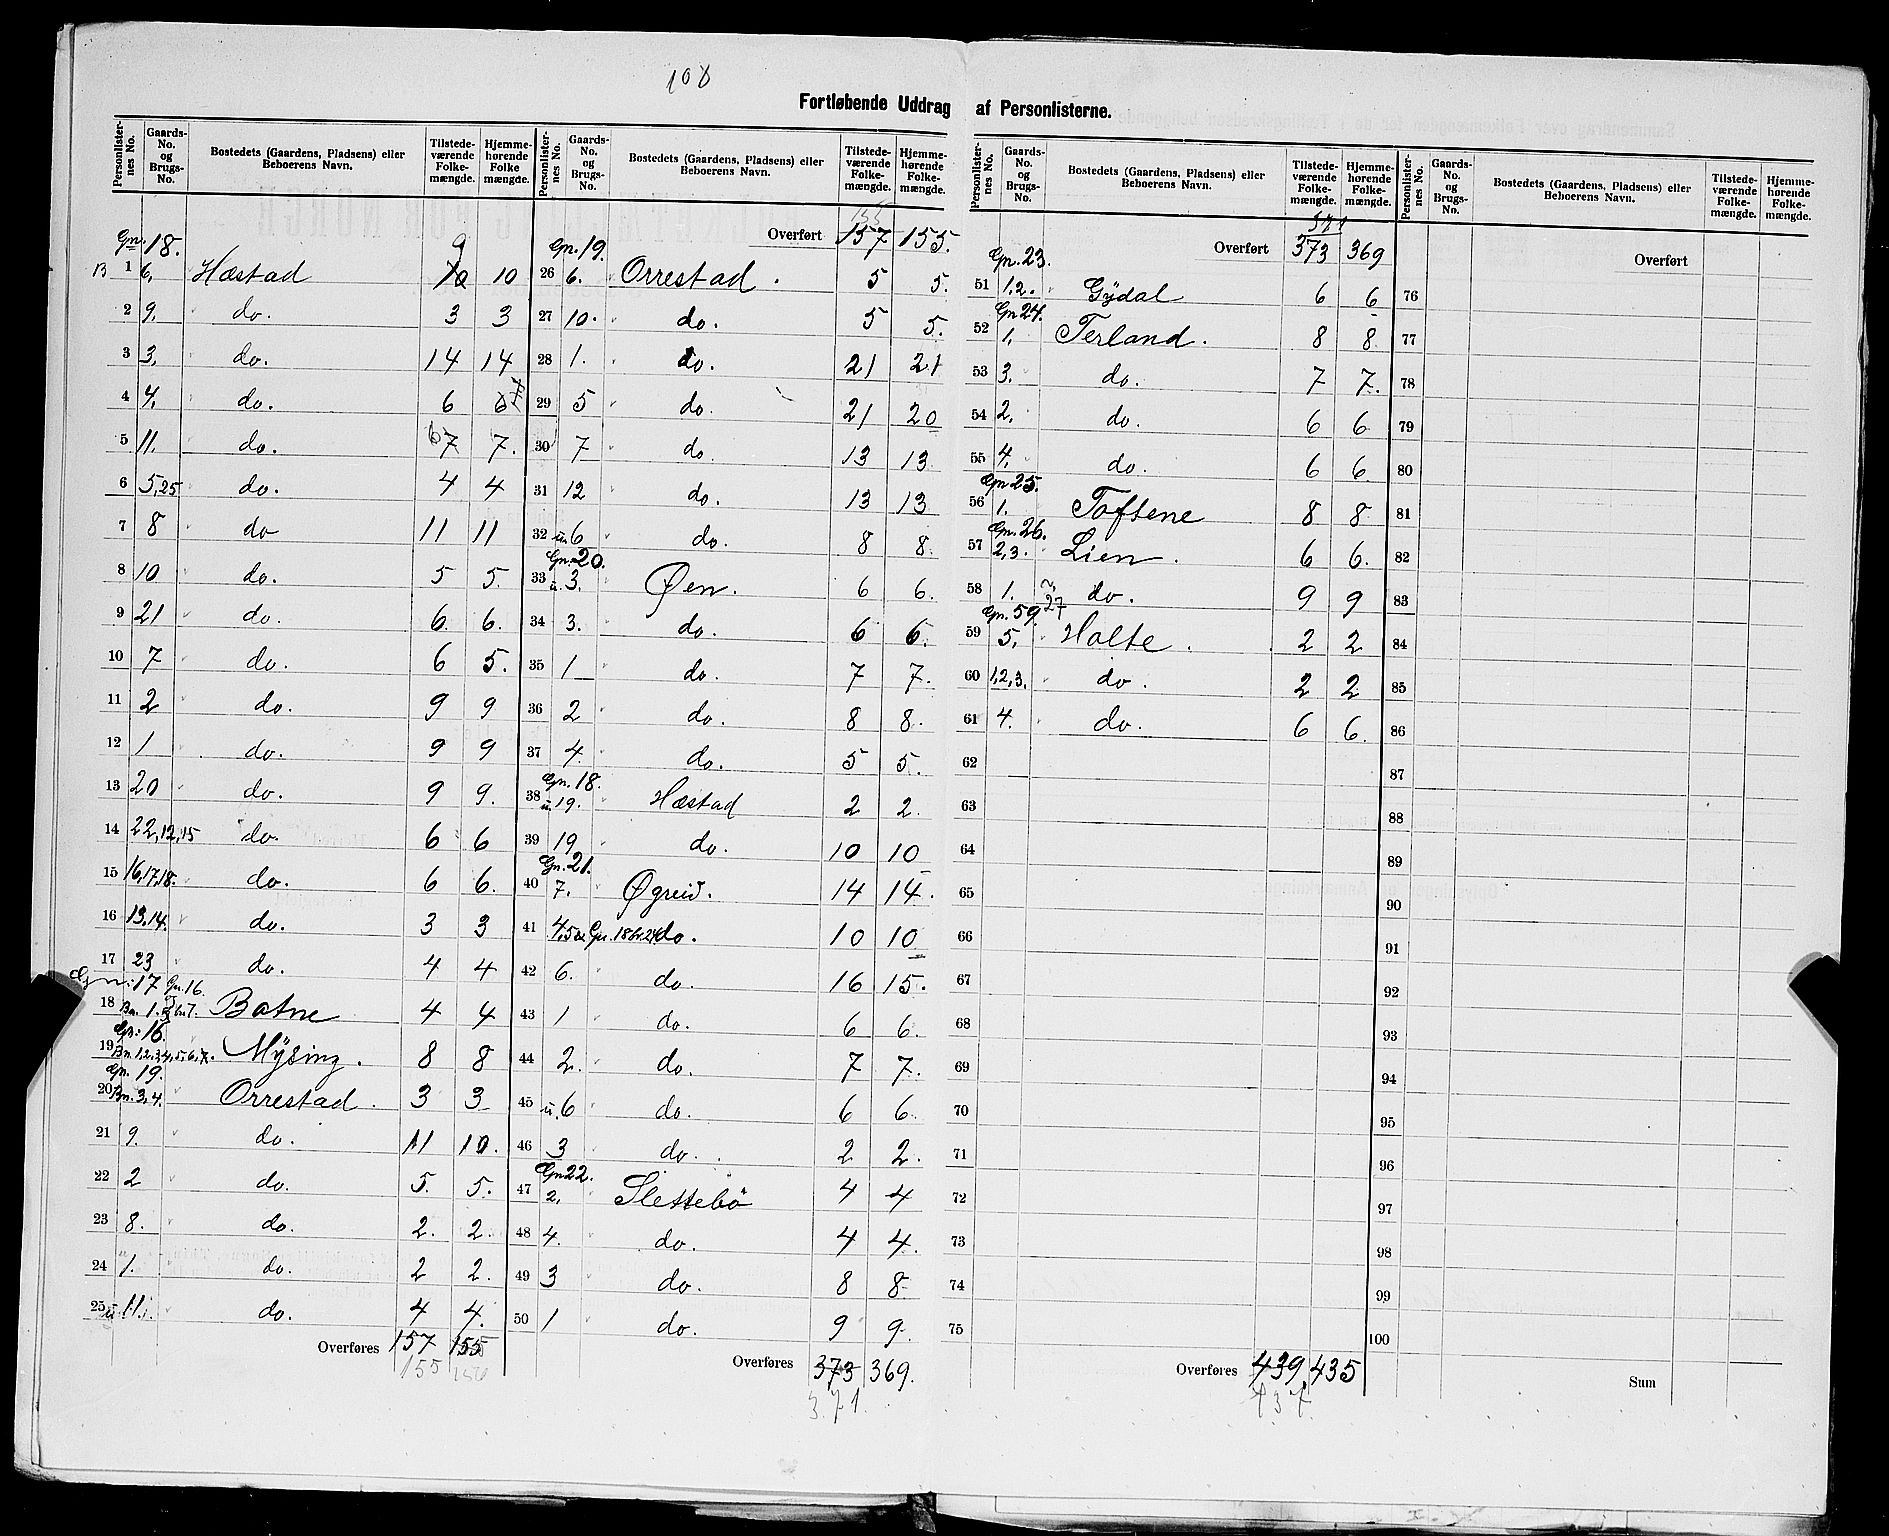 108
Fortløbende Uddrag af Personlisterne.
Personlister-nes No. | Gaards-No. og Brugs-No. | Bostedets (Gaardens, Pladsens) eller Beboerens Navn. | Tilstede-værende Folke-mængde. | Hjemme-hørende Folke mængde.
Gn. 18.
13 1 | 6. | Hæstad | 10 9 | 10
2 | 9. | do. | 3 | 3
3 | 3. | do. | 14 | 14
4 | 4. | do. | 6 | 6 7
5 | 11. | do. | 6 7 | 7.
6 | 5,25 | do. | 4 | 4
7 | 8 | do | 11 | 11
8 | 10 | do. | 5 | 5.
9 | 21 | do. | 6 | 6.
10 | 7 | do. | 6 | 5.
11 | 2 | do. | 9 | 9
12 | 1 | do. | 9 | 9
13 | 20 | do. | 9 | 9.
14 | 22,12,15 | do. | 6 | 6
15 | 16,17,18. | do. | 6 | 6.
16 | 13,14. | do. | 3 | 3
17 | 23 | do. | 4 | 4
Gn: 17 Gn. 16.
18 | Bn. 1. bn 7. | Botne | 4 | 4
Gn: 16.
19 | Bn. 1,2,3,4,5,6,7. | Mysing. | 8 | 8
Gn. 19.
20 | Bn. 3,4. | Orrestad. | 3 | 3
21 | 9. | do. | 11 | 10.
22 | 2 | do. | 5. | 5.
23 | 8. | do. | 2. | 2.
24 | 1. | do. | 2 | 2.
25 | u. 11. | do. | 4 | 4.
Overføres 157 | 155
155 | 156
Personlister-nes No. | Gaards-No. og Brugs-No. | Bostedets (Gaardens, Pladsens) eller Beboerens Navn. | Tilstede-værende Folke-mængde. | Hjemme-hørende Folke-mængde.
155
Overført 157 | 155.
Gn. 19.
26 | 6. | Orrestad. | 5 | 5.
27 | 10. | do. | 5 | 5.
28 | 1. | do. | 21 | 21
29 | 5 | do. | 21 | 20
30 | 7 | do. | 13 | 13.
31 | 12 | do. | 13 | 13
32 | u. 6 | do. | 8 | 8.
Gn. 20.
33 | u. 3. | Øen. | 6 | 6.
34 | 3. | do. | 6 | 6.
35 | 1 | do. | 7 | 7.
36 | 2 | do. | 8 | 8.
37 | 4 | do. | 5 | 5.
Gn. 18.
38 | u. 19. | Hæstad | 2 | 2.
39 | 19 | do. | 10 | 10
Gn. 21.
40 | 7. | Øgreid. | 14 | 14.
41 | 4,5 & Gn. 18 br. 24 | do. | 10 | 10
42 | 6. | do. | 16 | 15.
43 | 1 | do. | 6 | 6.
44 | 2. | do. | 7 | 7.
45 | u. 6 | do. | 6 | 6.
46 | 3 | do. | 2 | 2.
Gn 22.
47 | 2. | Slettebö | 4 | 4
48 | 4. | do. | 4 | 4.
49 | 3 | do. | 8 | 8.
50 | 1 | do. | 9 | 9.
Overføres 373 | 369.
371
Personlister-nes No. | Gaards-No. og Brugs-No. | Bostedets (Gaardens, Pladsens) eller Beboerens Navn. | Tilstede-værende Folke-mængde. | Hjemme-hørende Folke-mængde.
371
Overført 373 | 369
Gn. 23.
51 | 1,2. | Gydal | 6 | 6
Gn 24.
52 | 1. | Terland. | 8 | 8
53 | 3. | do. | 7 | 7.
54 | 2. | do. | 6 | 6.
55 | 4. | do. | 6 | 6.
Gn 25.
56 | 1. | Toftene | 8 | 8
Gn. 26.
57 | 2,3. | Lien. | 6 | 6.
58 | 1. 27 | do. | 9 | 9
Gn. 59
59 | 5. | Holte. | 2 | 2
60 | 1,2,3. | do. | 2 | 2
61 | 4. | do. | 6 | 6.
62
63
64
65
66
67
68
69
70
71
72
73
74
75
Overføres 439 | 435
437
Personlister-nes No. | Gaards-No. og Brugs-No. | Bostedets (Gaardens, Pladsens) eller Beboerens Navn. | Tilstede-værende Folke-mængde. | Hjemme-hørende Folke-mængde.
Overført
76
77
78
79
80
81
82
83
84
85
86
87
88
89
90
91
92
93
94
95
96
97
98
99
100
Sum